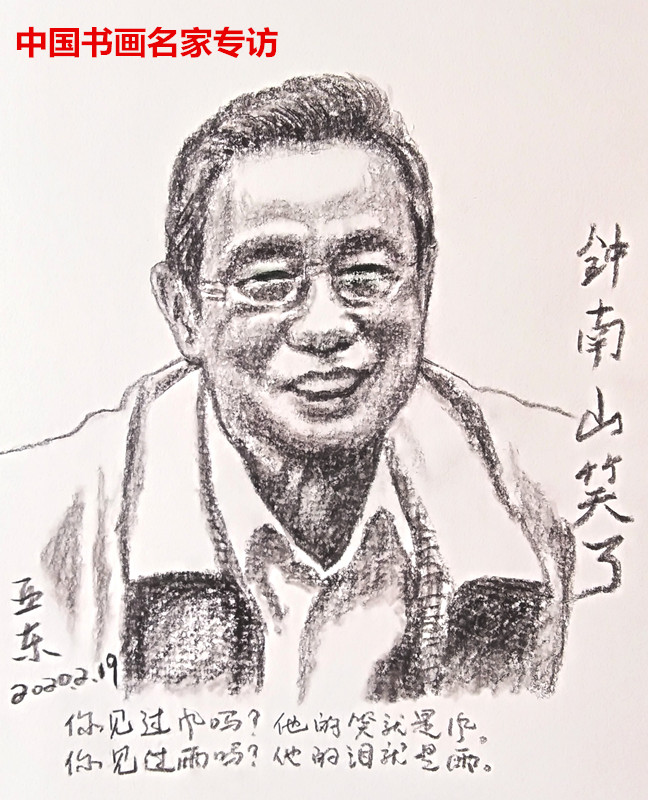 中国书画名家专访
鈡南山笑了
亚东
2020.2.19
你见过风吗？他的笑就是风。
你见过雨吗？他的泪就是雨。